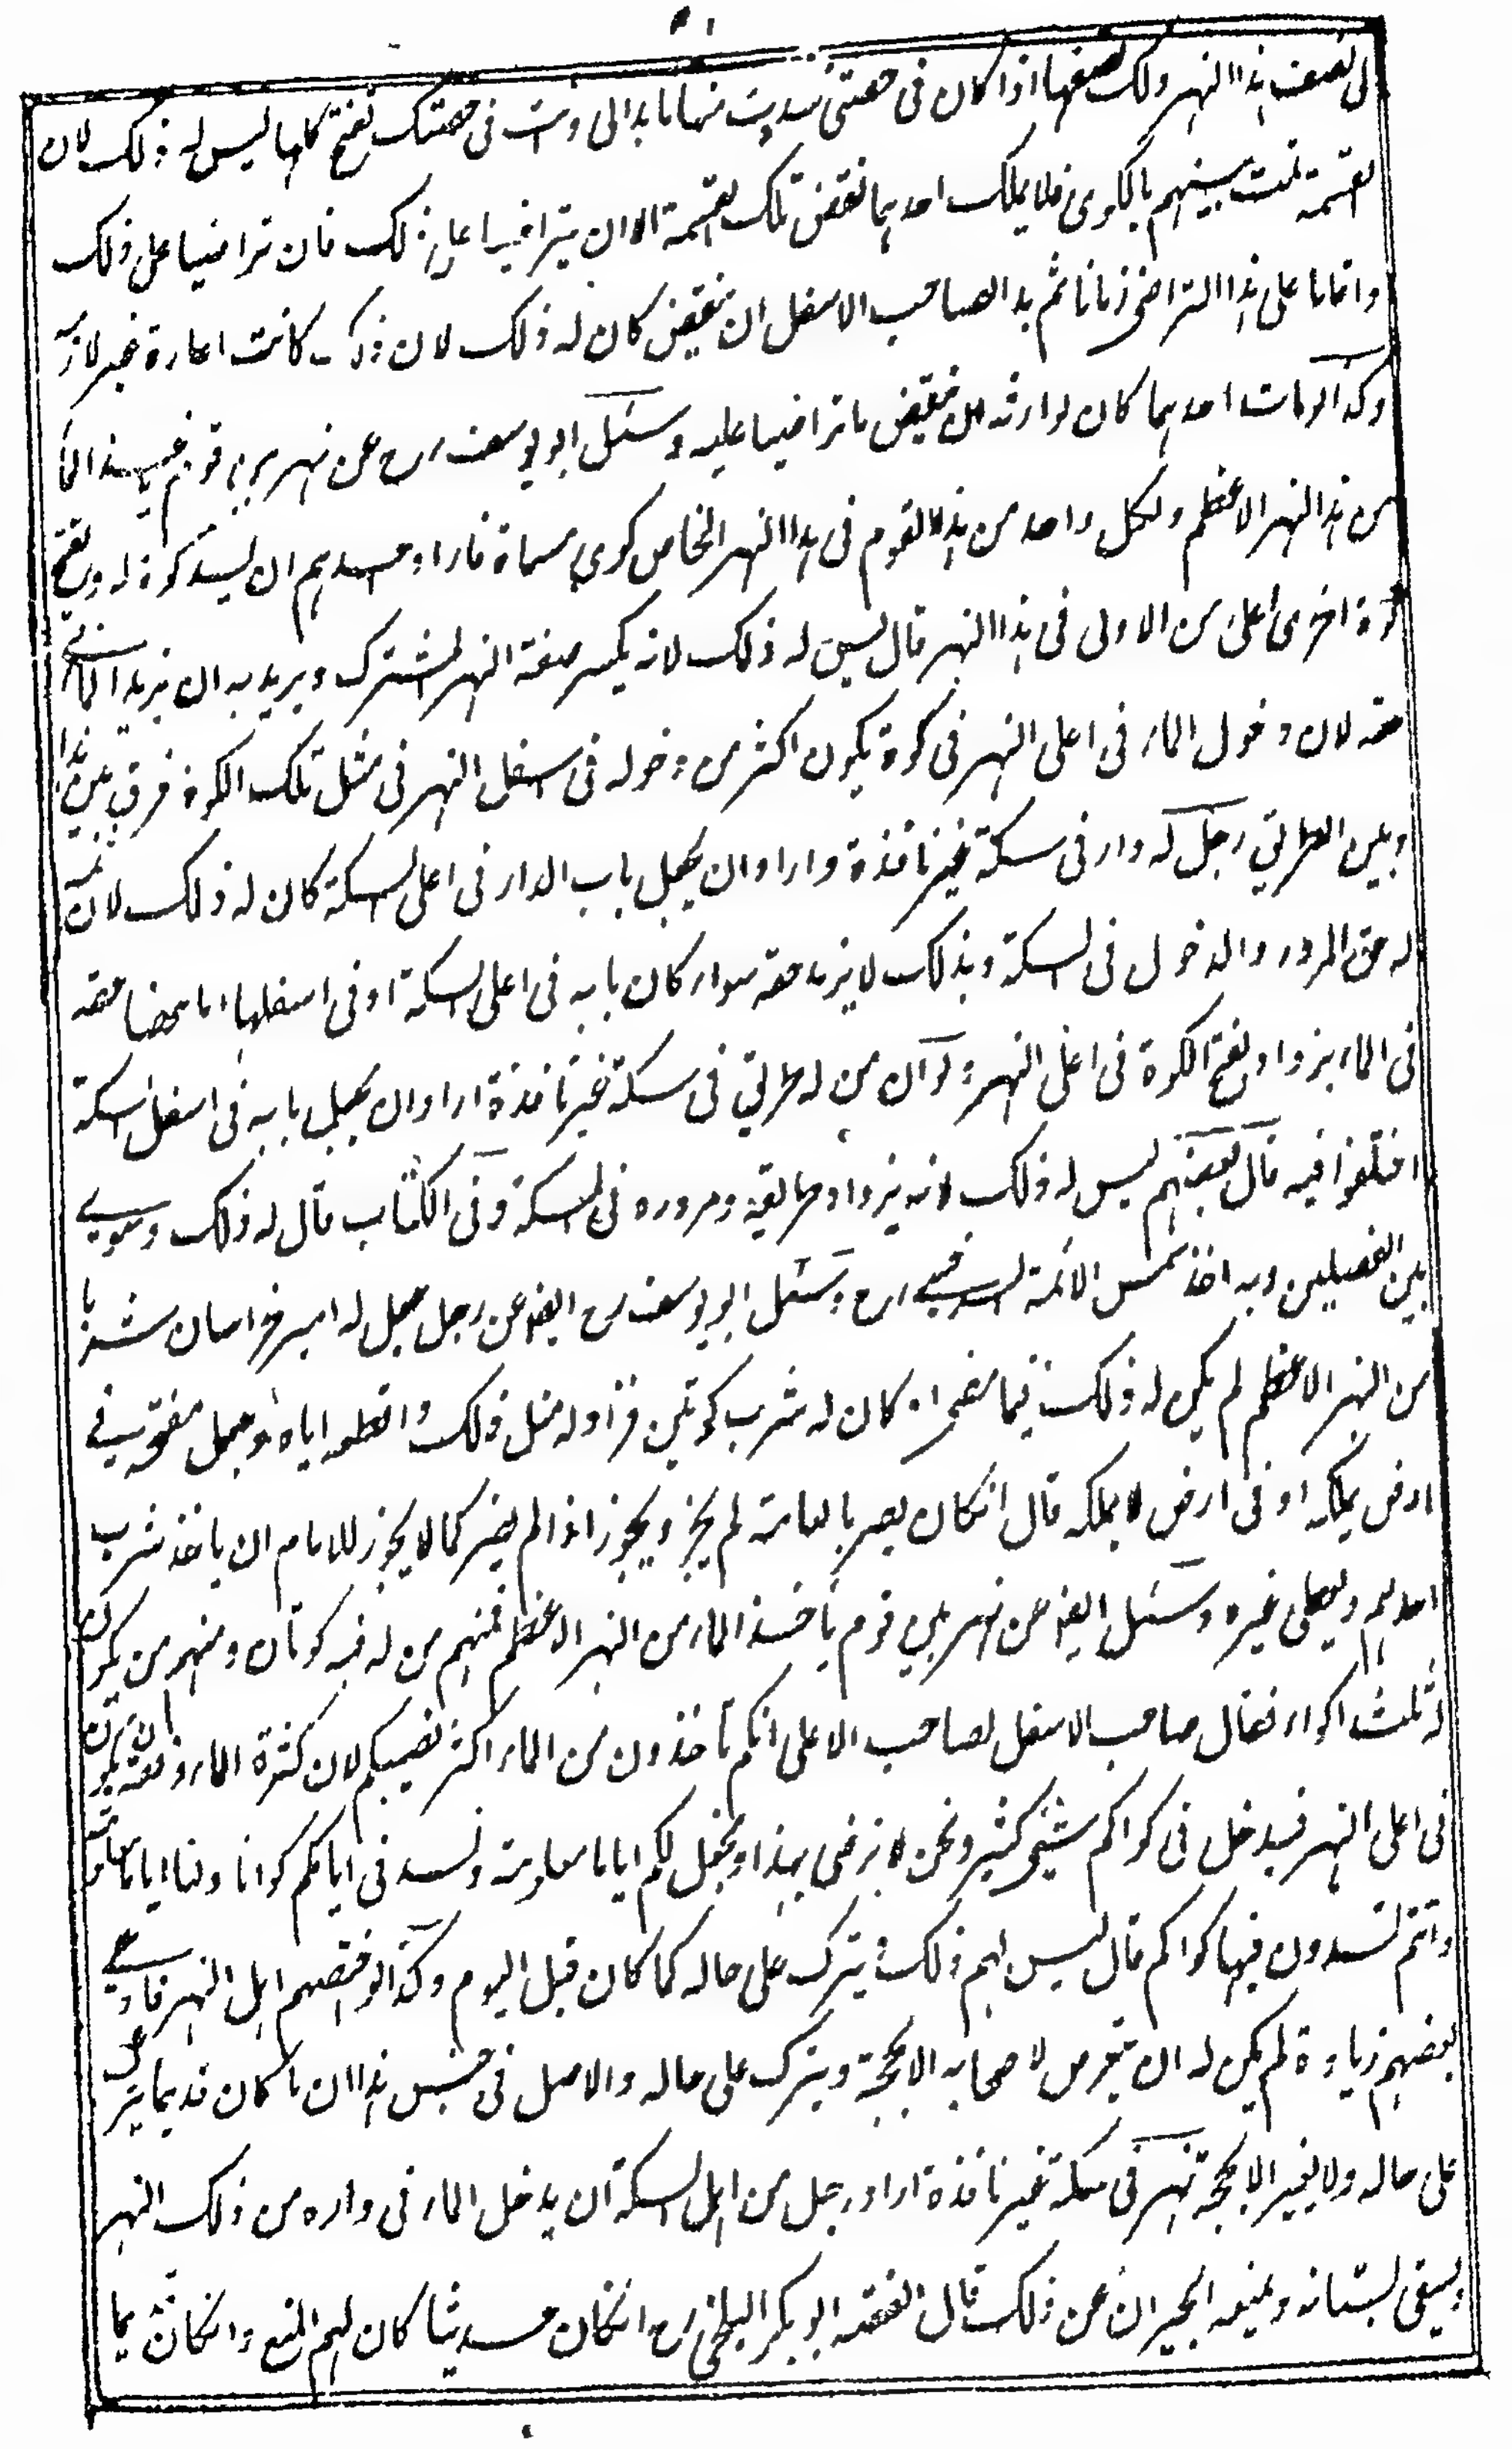 لى نصف هذا النهر ولك نصفها اذا كان فى حصتى سددت منها ما بدا لى وانت فى حصتك تفتح كلها ليس له ذلك لان
القسمة تمت بينهم بالكوى فلا يملك احدهما نقض تلك القسمة الا ان يتراضيا على ذلك فان تراضيا على ذلك
واقاما على هذا التراضى زمانا ثم بدا لصاحب الاسفل ان ينقض كان له ذلك لان ذلك كانت اعارة غير لازمة
وكذا لو مات احدهما كان لوارثه ان ينقض ما تراضيا عليه وسئل ابو يوسف رح عن نهر بين قوم ياخذ الماء
من هذا النهر الاعظم ولكل واحد من هؤلاء القوم فى هذا النهر الخاص كوى مسماة فاراد احدهم ان يسد كوة له ويفتح
كوة اخرى اعلى من الاولى فى هذا النهر قال ليس له ذلك لانه يكسر ضفة النهر المشترك ويريد به ان يزيد الماء فى
حقه لان دخول الماء فى اعلى النهر فى كوة يكون اكثر من دخوله فى اسفل النهر فى مثل تلك الكوة فرق بين هذا
وبين الطريق رجل له دار فى سكة غير نافذة واراد ان يجعل باب الدار فى اعلى السكة كان له ذلك لان ثمه
له حق المرور والدخول فى السكة وبذلك لا يزيد حقه سواء كان بابه فى اعلى السكة او فى اسفلها اما ههنا حقه
فى الماء يزداد بفتح الكوة فى اعلى النهر ولو ان من له طريق فى سكة غير نافذة اراد ان يجعل بابه فى اسفل السكة
اختلفوا فيه قال بعضهم ليس له ذلك لانه يزداد طريقه ومروره فى السكة وفى الكتاب قال له ذلك وسوى
بين الفصلين وبه اخذ شمس الائمة السرخسى رح وسئل ابو يوسف رح ايضا عن رجل جعل له امير خراسان شربا
من النهر الاعظم لم يكن له ذلك فيما مضى او كان له شرب كوتين فزاد له مثل ذلك واقطعه اياه وجعل مفتحه فى
ارض يملكه او فى ارض لا يملكه قال انكان يضر بالعامة لم يجز ويجوز اذا لم يضر كما لا يجوز للامام ان ياخذ شرب
احدهم ويعطى غيره وسئل ايضا عن نهر بين قوم ياخذ الماء من النهر الاعظم فمنهم من له فيه كوتان ومنهم من يكون
له ثلث اكوار فقال صاحب الاسفل لصاحب الاعلى انكم تاخذون من الماء اكثر نصيبكم لان كثرة الماء ودفعته يكون
فى اعلى النهر فيدخل فى كواكم شيئ كثير ونحن لا نرضى بهذا ونجعل لكم اياما معلومة ونسد فى ايامكم كوانا ولنا اياما معلومة
وانتم تسدون فيها كواكم قال ليس لهم ذلك ويترك على حاله كما كان قبل اليوم وكذا لو اختصم اهل النهر فادعى
بعضهم زيادة لم يكن له ان يتعرض لاصحابه الا بحجة ويترك على حاله والاصل فى جنس هذا ان ما كان قديما يترك
على حاله ولا يغير الا بحجة نهر فى سكة غير نافذة اراد رجل من اهل السكة ان يدخل الماء فى داره من ذلك النهر
ويسقى بستانه ويمنعه الجيران عن ذلك قال الفقيه ابو بكر البلخى رح انكان حديثا كان لهم المنع وانكان قديما